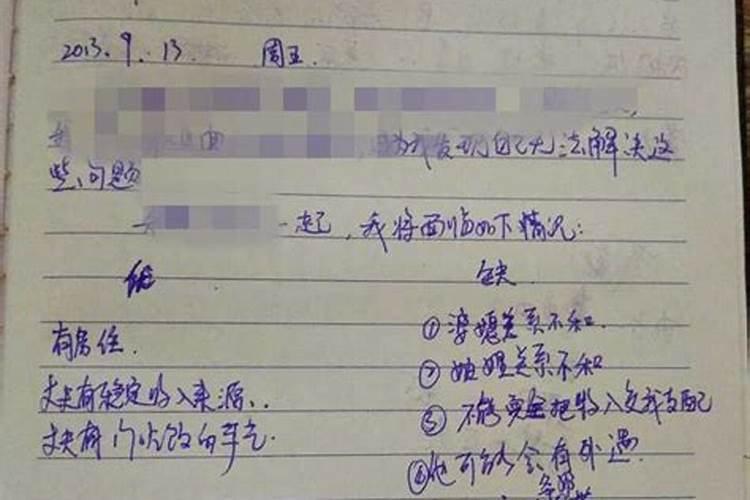 2013.9.13. 周五.
因为我发现自己无法解决这
些问题
一起,我将面临如下情况:
优
有房住.
丈夫有稳定收入来源..
丈夫有门吃饭的手艺.
缺
①婆媳关系不和.
②妯娌关系不和
③不能完全把收入交我支配
④他可能会有外遇.